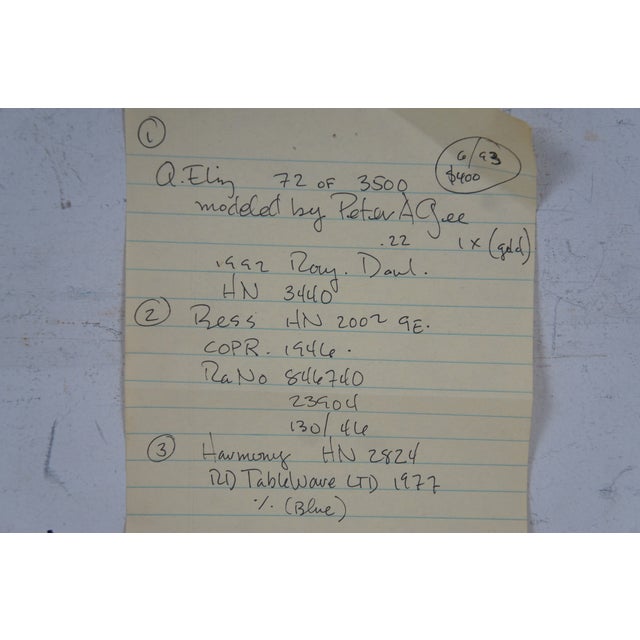 ①
6/93
$400
Q. Eliz 72 of 3500
modeled by Peter A Gee
.22 1 x (gold)
1992 Roy. Doul.
HN 3440
② Bess HN 2002 9E.
COPR. 1946.
Ra No 846740
23904
130/46
③ Harmony HN 2824
RD TableWave LTD 1977
(Blue)